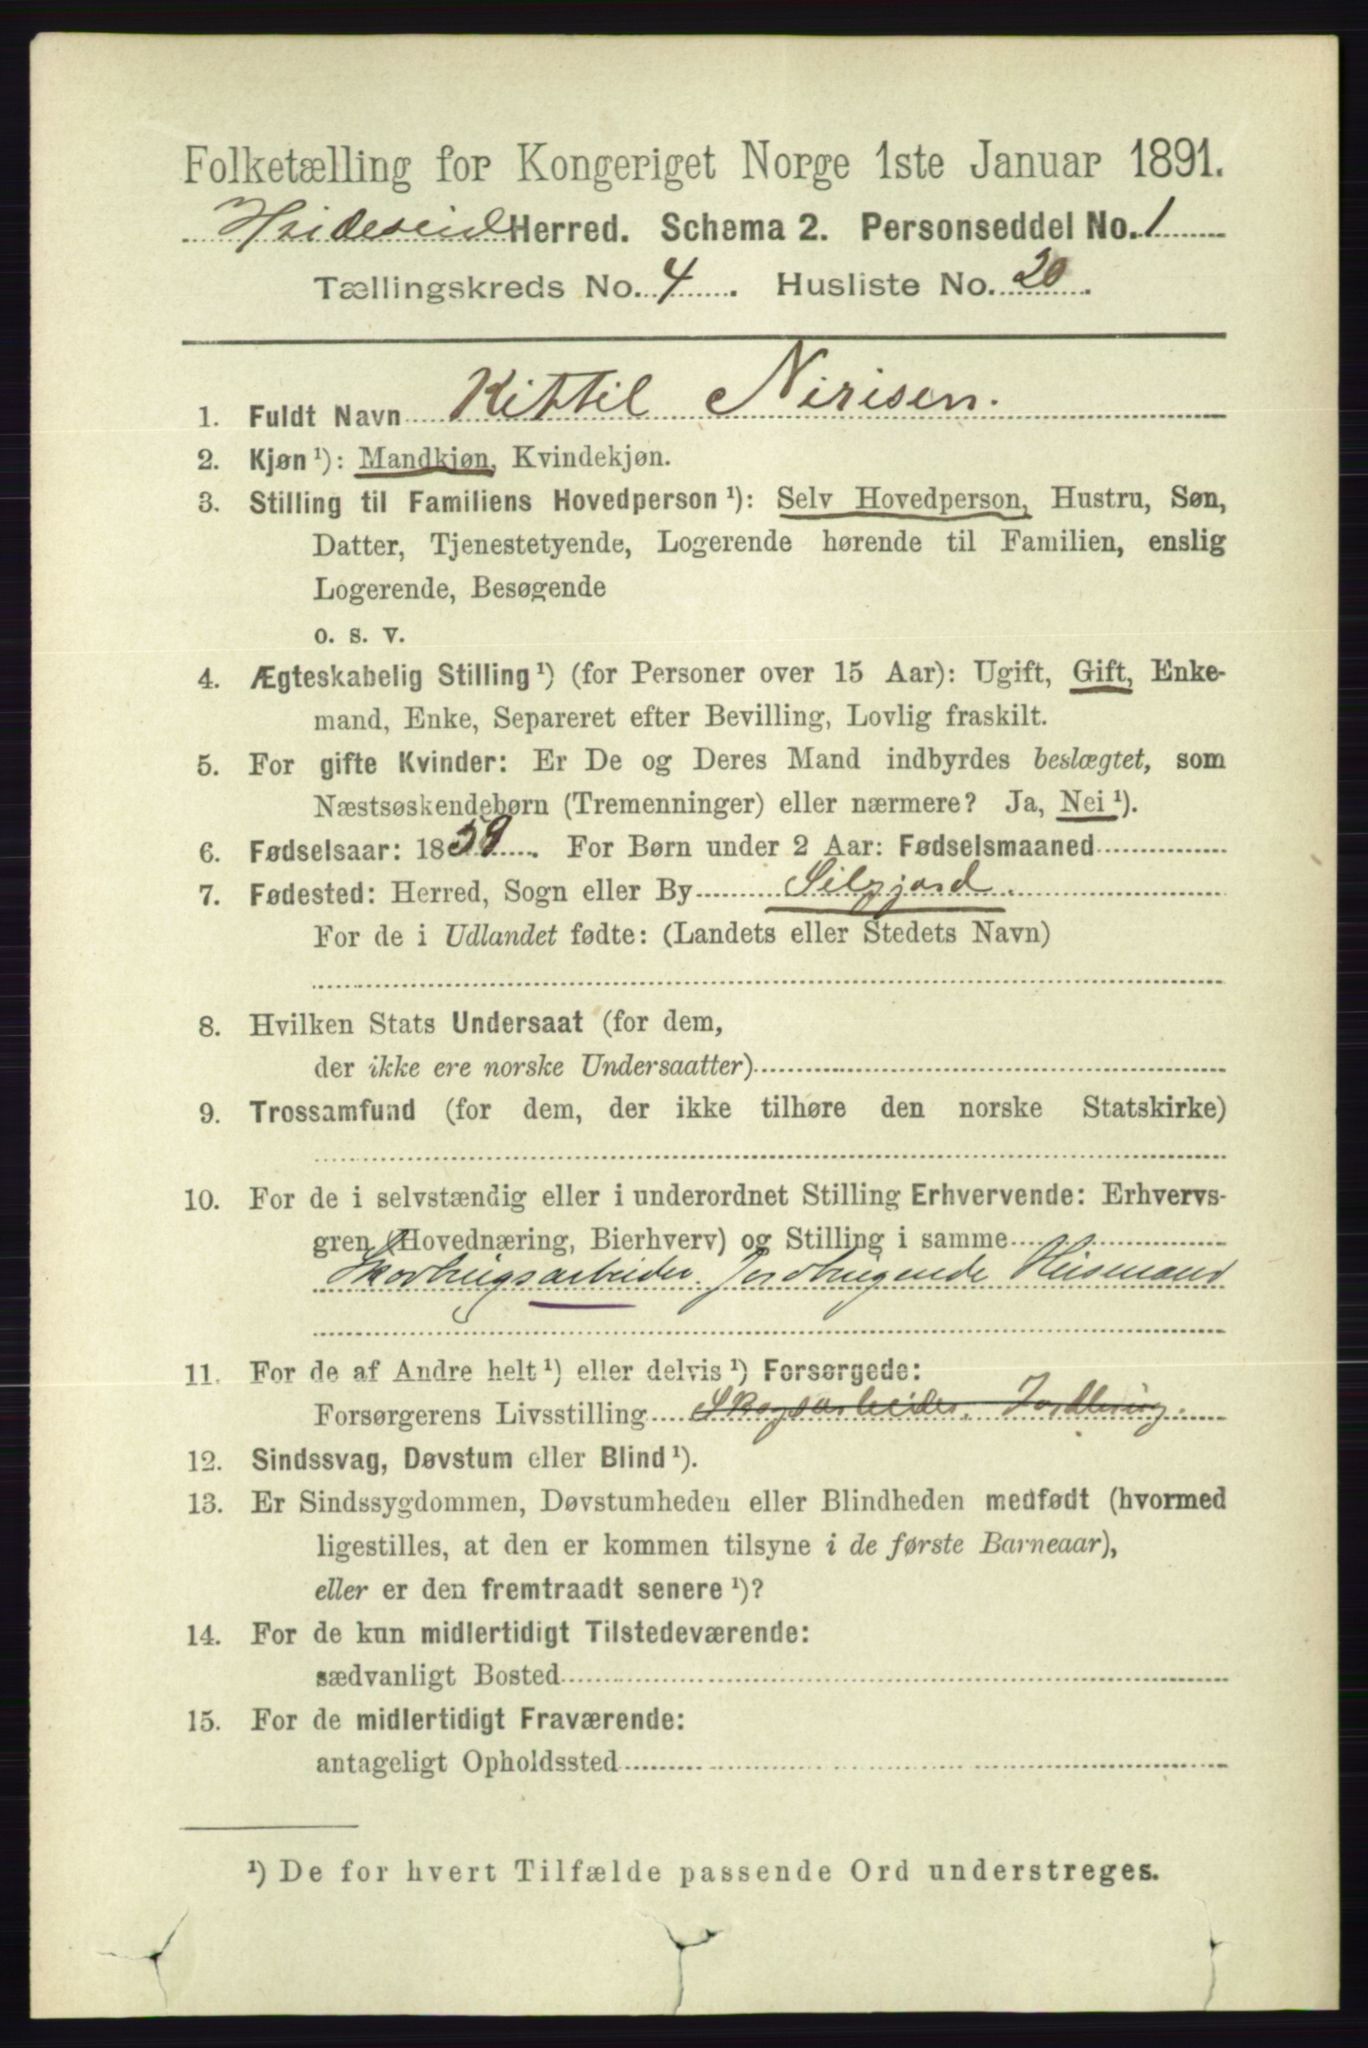 Folketælling for Kongeriget Norge 1ste Januar 1891.
Hvideseid Herred. Schema 2. Personseddel No. 1
Tællingskreds No. 4. Husliste No. 20.
1. Fuldt Navn Kittil Nirisen.
2. Kjøn ¹): Mandkjøn, Kvindekjøn.
3. Stilling til Familiens Hovedperson ¹): Selv Hovedperson, Hustru, Søn,
Datter, Tjenestetyende, Logerende hørende til Familien, enslig
Logerende, Besøgende
o. s. v.
4. Ægteskabelig Stilling ¹) (for Personer over 15 Aar): Ugift, Gift, Enke-
mand, Enke, Separeret efter Bevilling, Lovlig fraskilt.
5. For gifte Kvinder: Er De og Deres Mand indbyrdes beslægtet, som
Næstsøskendebørn (Tremenninger) eller nærmere? Ja, Nei ¹).
6. Fødselsaar: 1859. For Børn under 2 Aar: Fødselsmaaned
7. Fødested: Herred, Sogn eller By Silgjord.
For de i Udlandet fødte: (Landets eller Stedets Navn)
8. Hvilken Stats Undersaat (for dem,
der ikke ere norske Undersaatter)
9. Trossamfund (for dem, der ikke tilhøre den norske Statskirke)
10. For de i selvstændig eller i underordnet Stilling Erhvervende: Erhvervs-
gren (Hovednæring, Bierhverv) og Stilling i samme
Skovhugsarbeider. Jordbrugende Husmand
11. For de af Andre helt ¹) eller delvis ¹) Forsørgede:
Forsørgerens Livsstilling Skogsarbeider.
12. Sindssvag, Døvstum eller Blind ¹).
13. Er Sindssygdommen, Døvstumheden eller Blindheden medfødt (hvormed
ligestilles, at den er kommen tilsyne i de første Barneaar),
eller er den fremtraadt senere ¹)?
14. For de kun midlertidigt Tilstedeværende:
sædvanligt Bosted
15. For de midlertidigt Fraværende:
antageligt Opholdssted
¹) De for hvert Tilfælde passende Ord understreges.